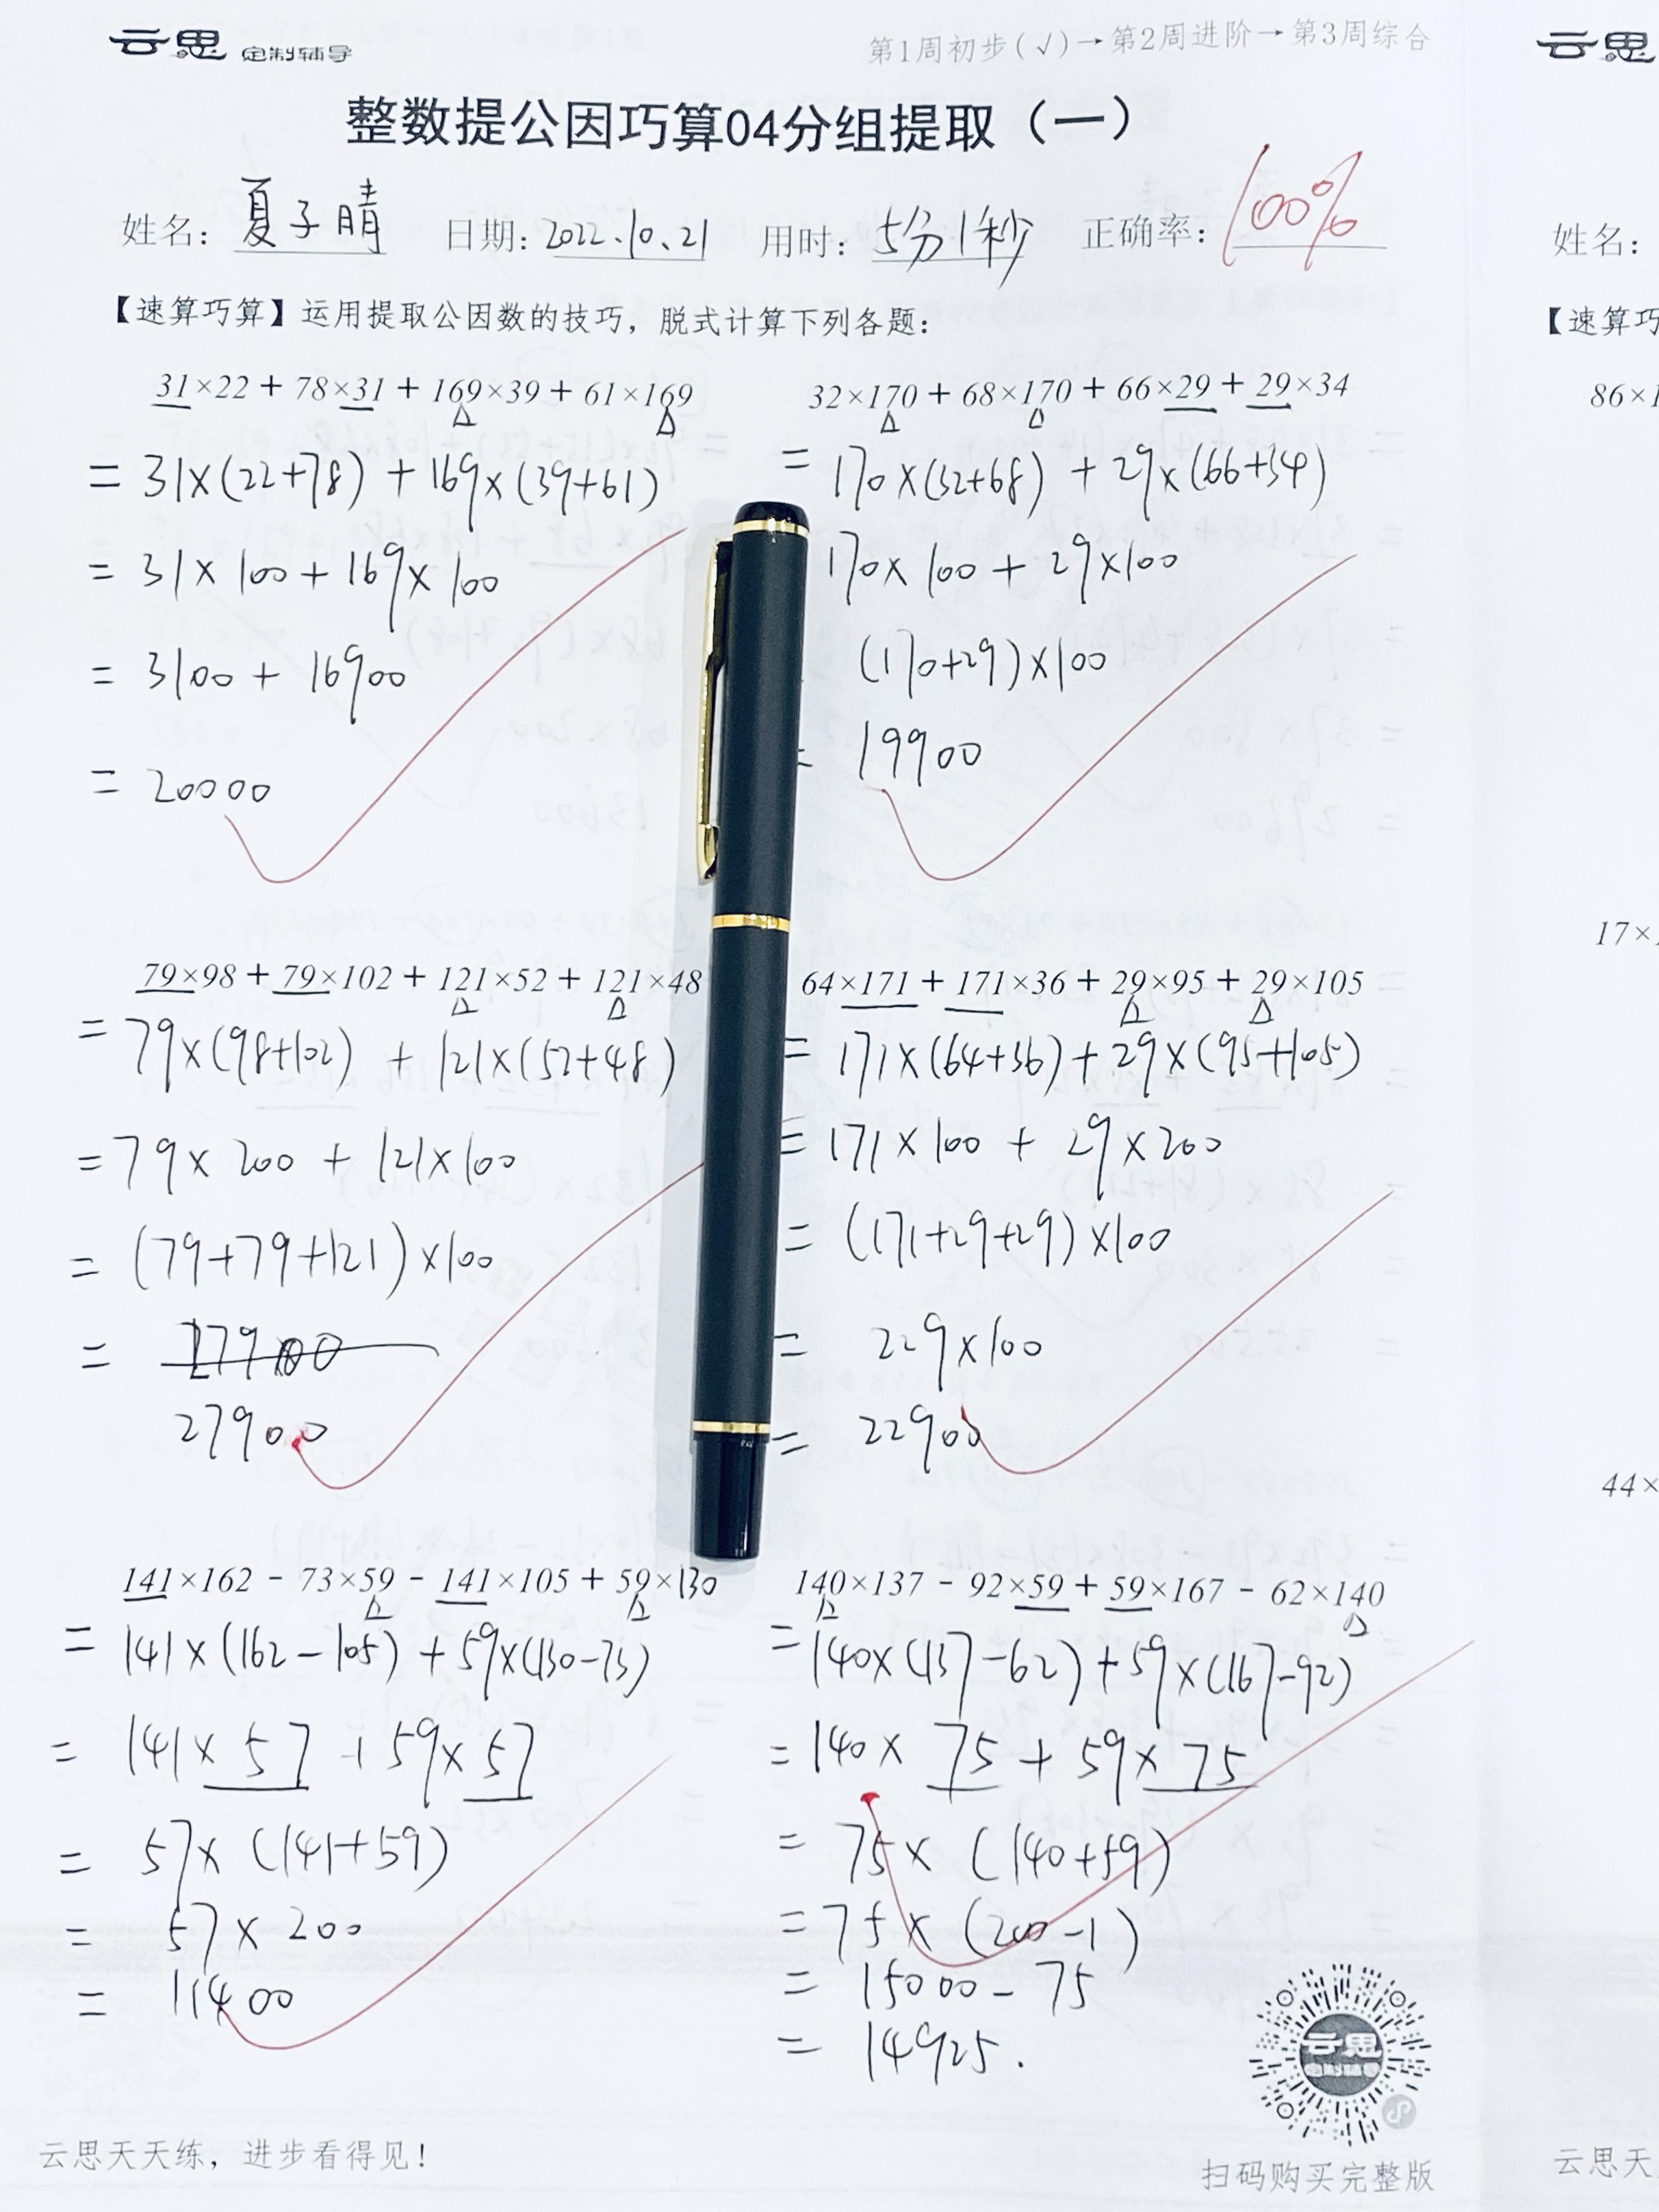 云思 定制辅导
第1周初步(√)→第2周进阶→第3周综合
云思
整数提公因巧算04分组提取（一）
姓名：夏子晴 日期：2022.10.21 用时：5分1秒 正确率：100%
姓名：
【速算巧算】运用提取公因数的技巧，脱式计算下列各题：
【速算巧
31×22 + 78×31 + 169×39 + 61×169
= 31×(22+78) + 169×(39+61)
= 31×100+169×100
= 3100 + 16900
= 20000
32×170 + 68×170 + 66×29 + 29×34
= 170×(32+68) + 29×(66+34)
170×100 + 29×100
(170+29)×100
= 19900
86×1
79×98 + 79×102 + 121×52 + 121×48
= 79×(98+102) + 121×(52+48)
= 79×200 + 121×100
= (79+79+121)×100
=
27900
64×171 + 171×36 + 29×95 + 29×105
= 171×(64+36)+29×(95+105)
= 171×100 + 29×200
= (171+29+29)×100
= 229×100
= 22900
17×
141×162 - 73×59 - 141×105 + 59×130
= 141×(162-105)+59×(130-73)
= 141×57+59×57
= 57×(141+59)
= 57×200
= 11400
140×137 - 92×59 + 59×167 - 62×140
= 140×(137-62)+59×(167-92)
= 140×75+59×75
= 75×(140+59)
= 75×(200-1)
= 15000-75
= 14925.
44×
云思
云思天天练，进步看得见！
扫码购买完整版
云思天